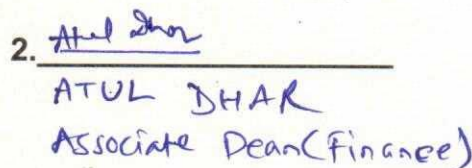 2. Atul Dhar
ATUL DHAR
Associate Dean (Finance)